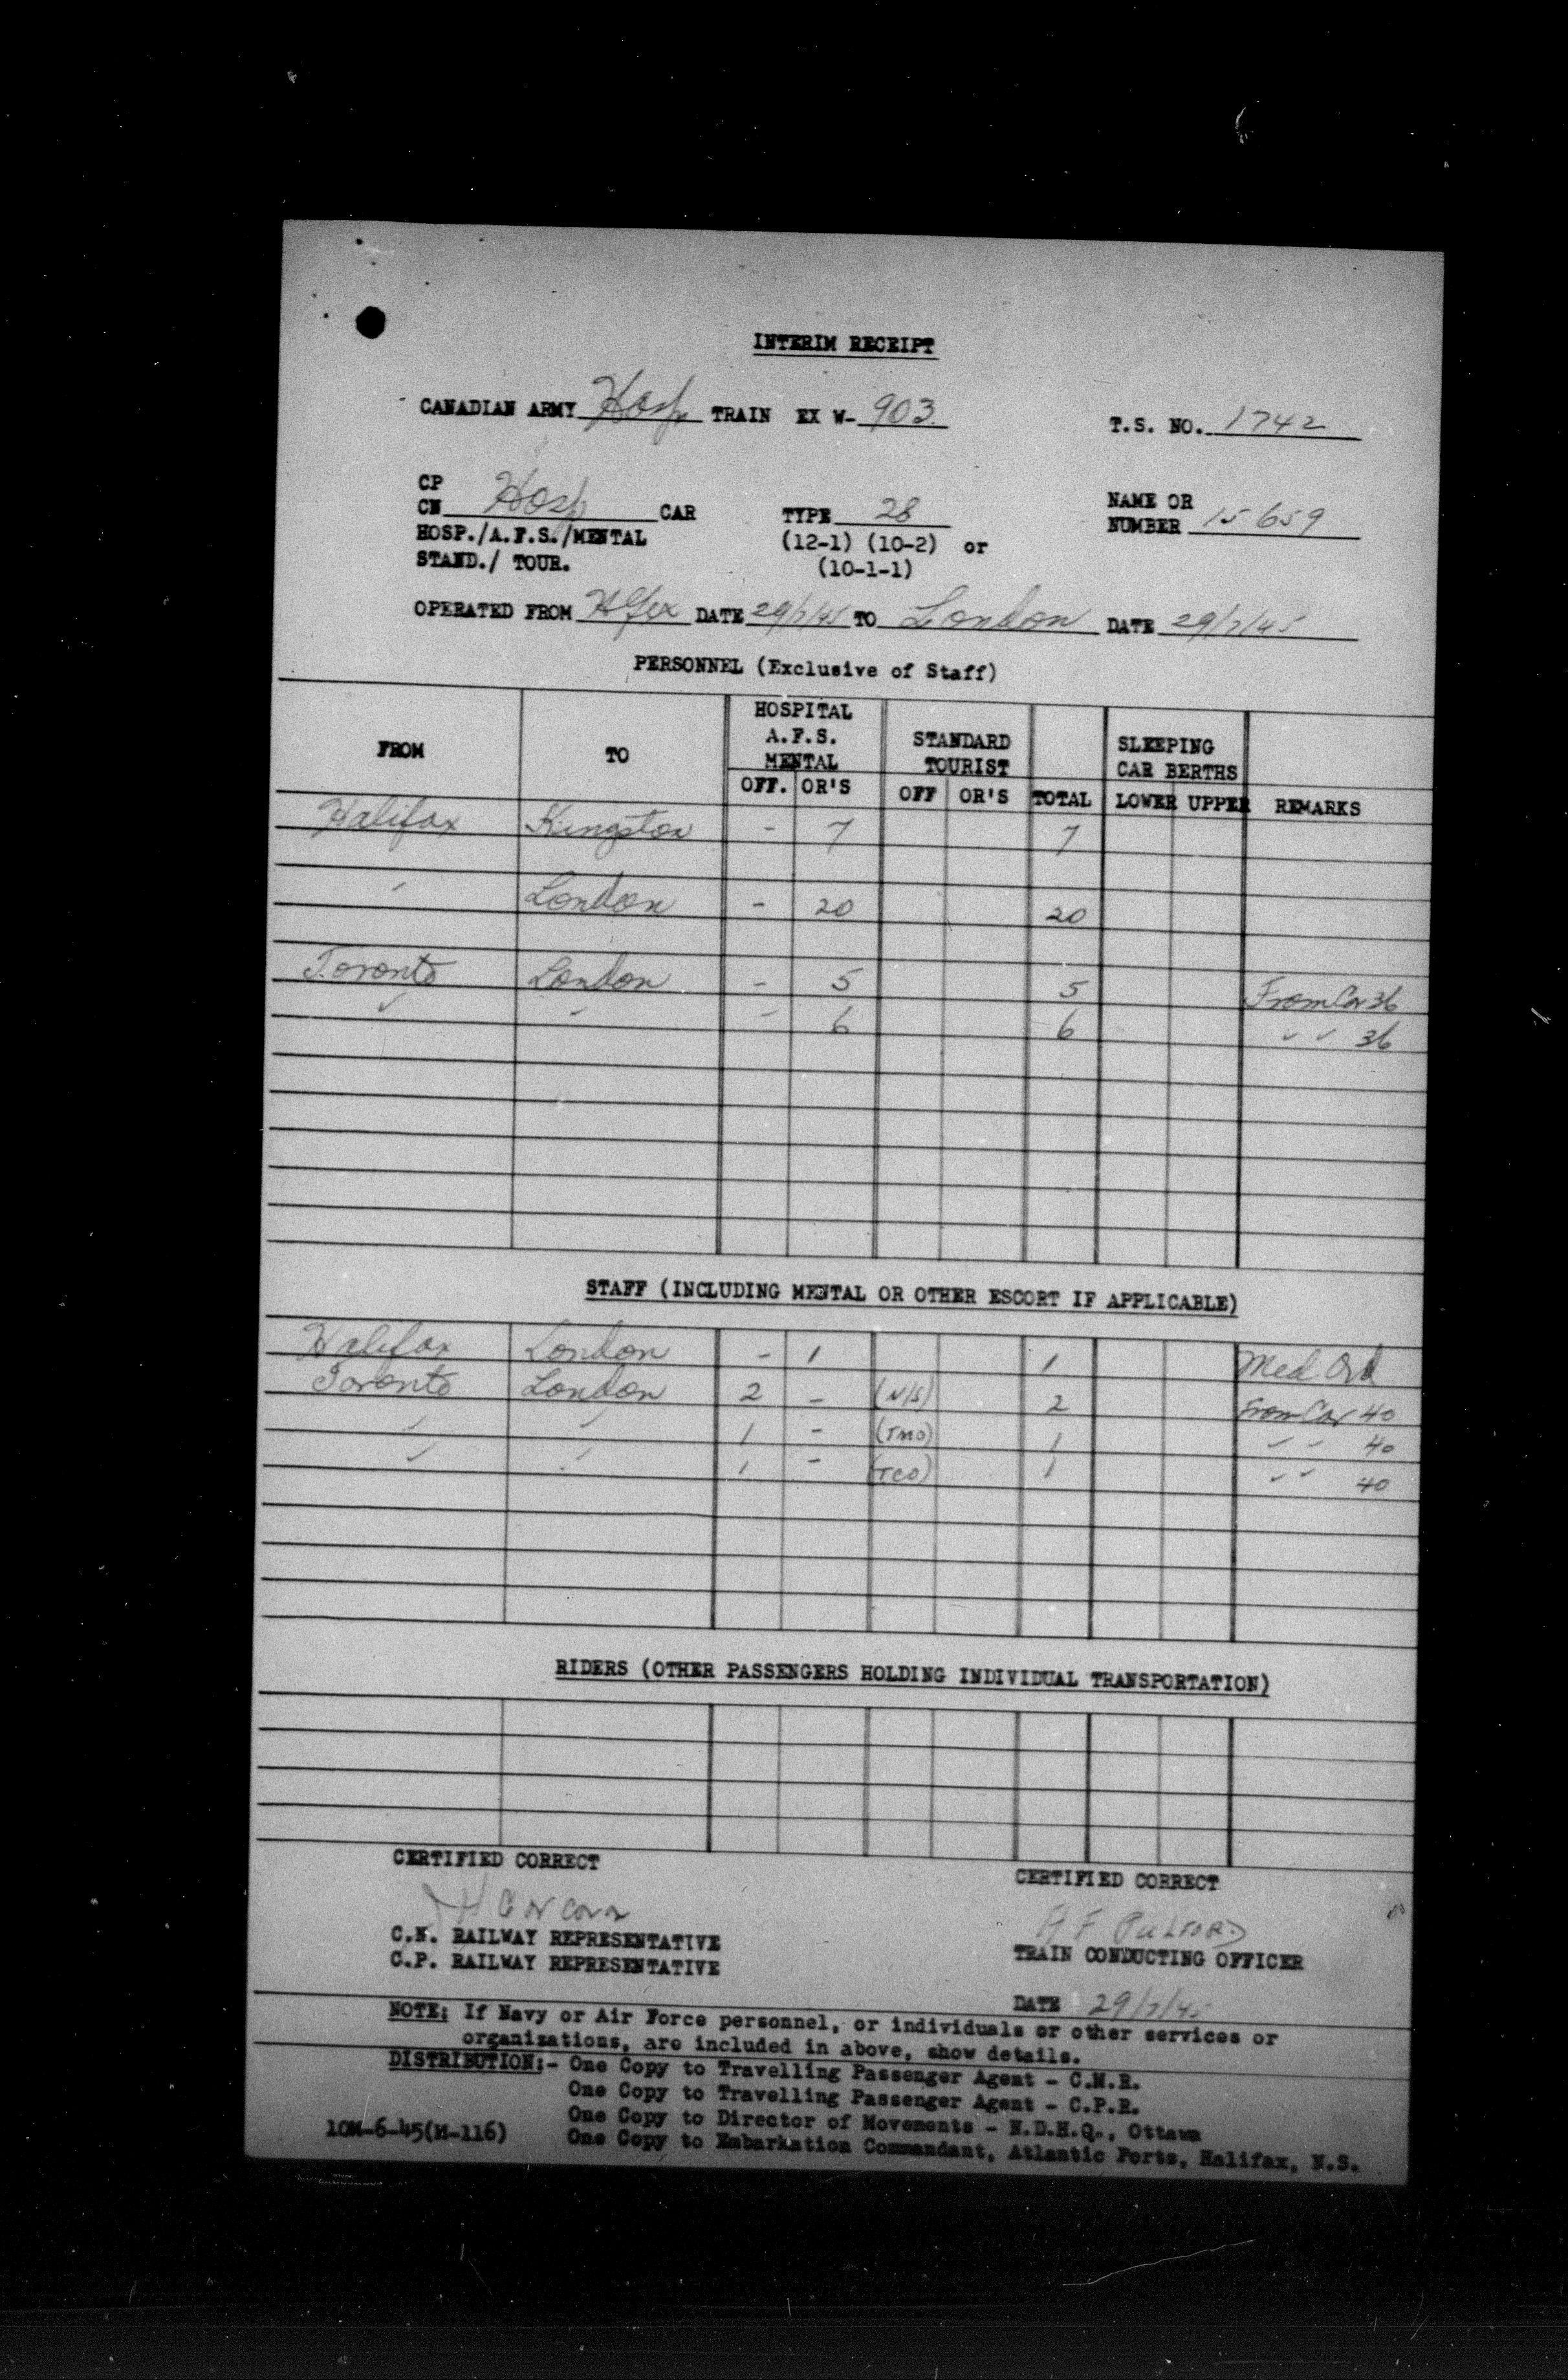 INTERIM RECEIPT
CANADIAN ARMY Hosp TRAIN EX W- 903 T.S. NO. 1742
CP
CN Hosp CAR TYPE 28 NAME OR NUMBER 15659
HOSP./A.F.S./MENTAL (12-1) (10-2) or
STAND./ TOUR. (10-1-1)
OPERATED FROM Hfex DATE 29/7/45 TO London DATE 29/7/45
PERSONNEL (Exclusive of Staff)
FROM TO HOSPITAL A.F.S. MENTAL STANDARD TOURIST SLEEPING CAR BERTHS
OFF. OR'S OFF OR'S TOTAL LOWER UPPER REMARKS
Halifax Kingston - 7 7
" London - 20 20
Toronto London - 5 5 From Car 36
" " - 6 6 " " 36
STAFF (INCLUDING MENTAL OR OTHER ESCORT IF APPLICABLE)
Halifax London - 1 1 Med Ord
Toronto London 2 - (N/S) 2 From Car 40
" " 1 - (TMO) 1 " " 40
" " 1 - (TCO) 1 " " 40
RIDERS (OTHER PASSENGERS HOLDING INDIVIDUAL TRANSPORTATION)
CERTIFIED CORRECT CERTIFIED CORRECT
H Corcoran A F PULFORD
C.N. RAILWAY REPRESENTATIVE TRAIN CONDUCTING OFFICER
C.P. RAILWAY REPRESENTATIVE
DATE 29/7/45
NOTE: If Navy or Air Force personnel, or individuals or other services or
organizations, are included in above, show details.
DISTRIBUTION:- One Copy to Travelling Passenger Agent - C.N.R.
One Copy to Travelling Passenger Agent - C.P.R.
One Copy to Director of Movements - N.D.H.Q., Ottawa
10M-6-45(M-116) One Copy to Embarkation Commandant, Atlantic Ports, Halifax, N.S.